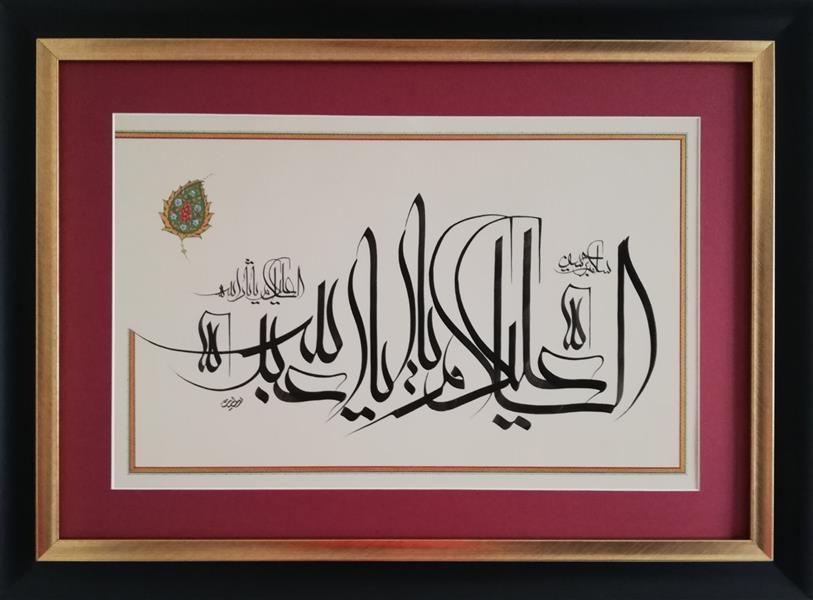 سلام بر حسین
السلام علیک یا ابا عبدالله
السلام علیک یا ثارالله